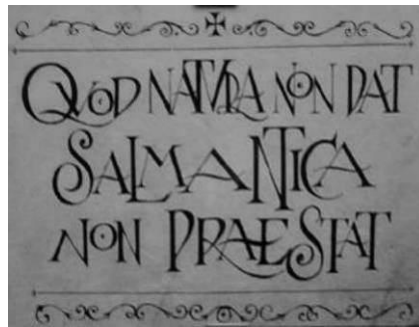 QUOD NATURA NON DAT
SALMANTICA
NON PRAESTAT